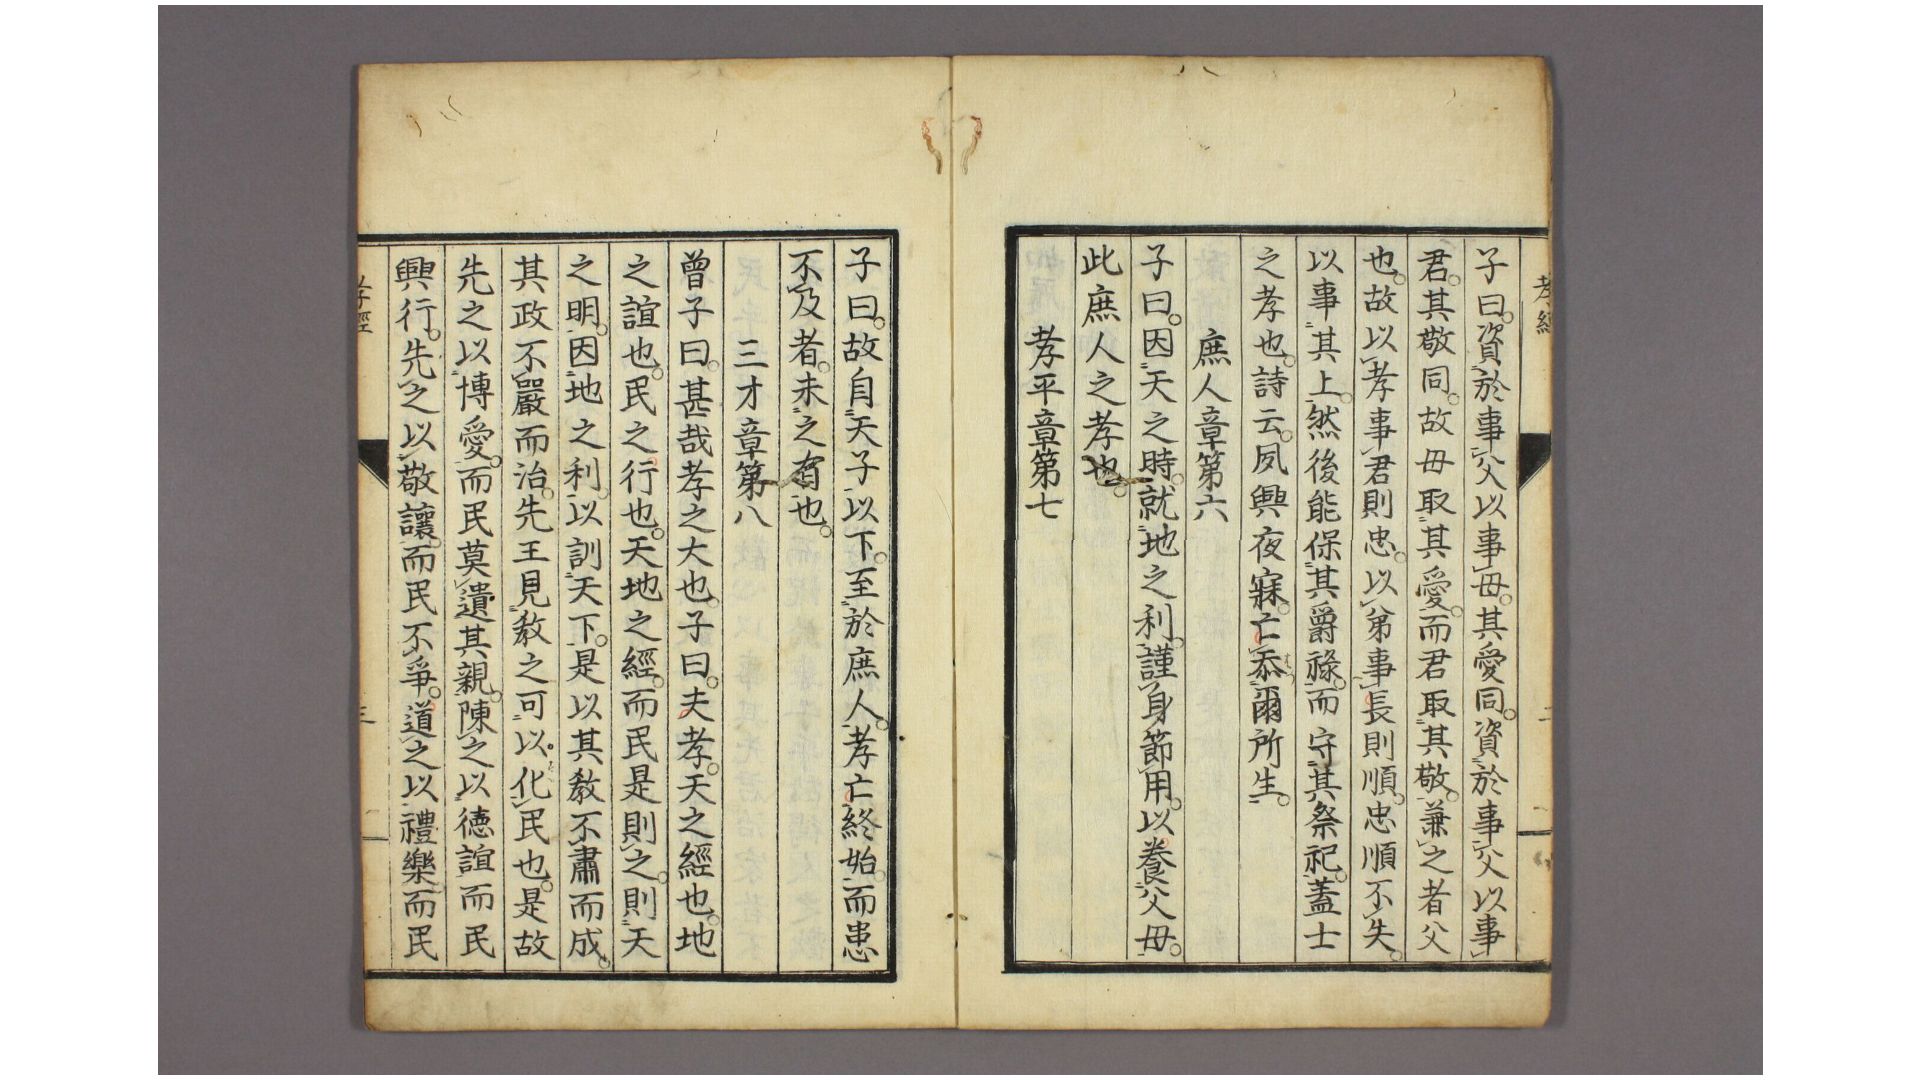 孝經
子曰。資於事父以事母。其愛同。資於事父以事
君。其敬同。故母取其愛。而君取其敬。兼之者父
也。故以孝事君則忠。以弟事長則順。忠順不失。
以事其上。然後能保其爵祿。而守其祭祀。蓋士
之孝也。詩云。夙興夜寐。亡忝爾所生。
庶人章第六
子曰。因天之時。就地之利。謹身節用。以養父母。
此庶人之孝也。
孝平章第七
子曰。故自天子以下。至於庶人。孝亡終始。而患
不及者。未之有也。
三才章第八
曾子曰。甚哉孝之大也。子曰。夫孝。天之經也。地
之誼也。民之行也。天地之經。而民是則之。則天
之明。因地之利。以訓天下。是以其教不肅而成。
其政不嚴而治。先王見教之可以化民也。是故
先之以博愛。而民莫遺其親。陳之以德誼而民
興行。先之以敬讓。而民不爭。道之以禮樂。而民
孝經
三